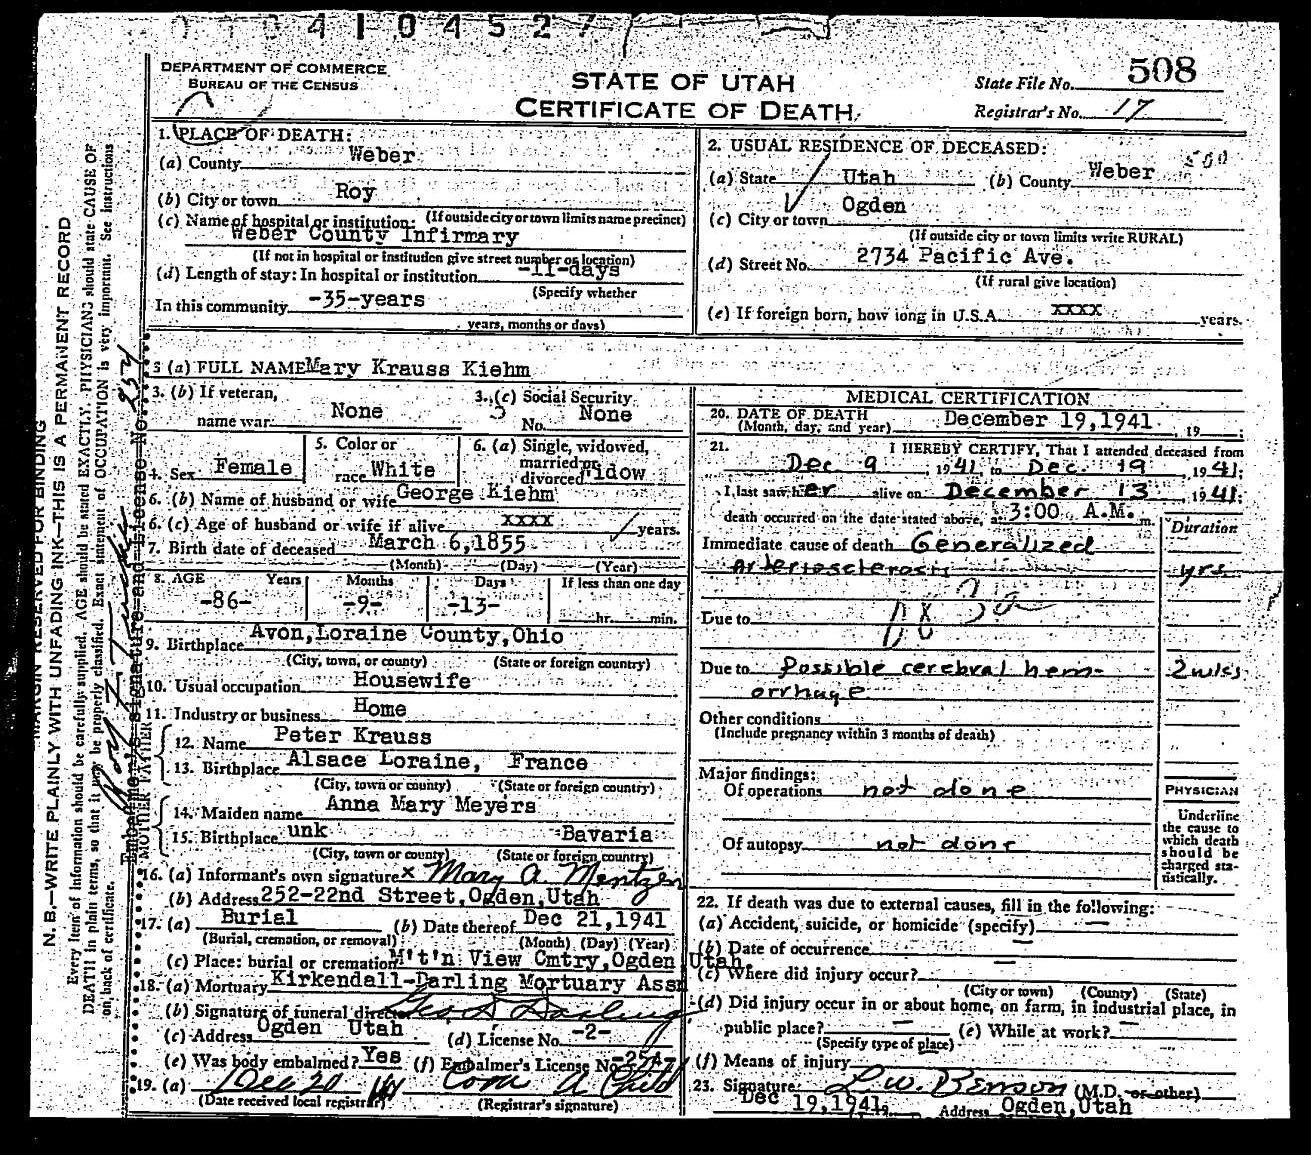 0 1 0 4 1 0 4 5 2 7
DEPARTMENT OF COMMERCE
BUREAU OF THE CENSUS
STATE OF UTAH
CERTIFICATE OF DEATH
State File No. 508
Registrar's No. 17
1. PLACE OF DEATH:
(a) County Weber
(b) City or town Roy
(If outside city or town limits name precinct)
(c) Name of hospital or institution:
Weber County Infirmary
(If not in hospital or institution give street number or location)
(d) Length of stay: In hospital or institution -11-days
(Specify whether
In this community -35-years
years, months or days)
2. USUAL RESIDENCE OF DECEASED:
(a) State Utah (b) County Weber
(c) City or town Ogden
(If outside city or town limits write RURAL)
(d) Street No. 2734 Pacific Ave.
(If rural give location)
(e) If foreign born, how long in U.S.A. xxxx years.
3 (a) FULL NAME Mary Krauss Kiehm
3. (b) If veteran,
name war None
3. (c) Social Security
No. None
4. Sex Female
5. Color or
race White
6. (a) Single, widowed,
married or
divorced Widow
6. (b) Name of husband or wife George Kiehm
6. (c) Age of husband or wife if alive xxxx years.
7. Birth date of deceased March 6,1855
(Month) (Day) (Year)
8. AGE Years Months Days If less than one day
-86- -9- -13- hr. min.
9. Birthplace Avon,Loraine County,Ohio
(City, town, or county) (State or foreign country)
10. Usual occupation Housewife
11. Industry or business Home
FATHER
12. Name Peter Krauss
13. Birthplace Alsace Loraine, France
(City, town or county) (State or foreign country)
MOTHER
14. Maiden name Anna Mary Meyers
15. Birthplace unk Bavaria
(City, town or county) (State or foreign country)
16. (a) Informant's own signature x Mary A Mentzen
(b) Address 252-22nd Street,Ogden,Utah
17. (a) Burial (b) Date thereof Dec 21,1941
(Burial, cremation, or removal) (Month) (Day) (Year)
(c) Place: burial or cremation M't'n View Cmtry,Ogden Utah
18. (a) Mortuary Kirkendall-Darling Mortuary Assn
(b) Signature of funeral director Geo D Darling
(c) Address Ogden Utah (d) License No. -2-
(e) Was body embalmed? Yes (f) Embalmer's License No. -254-
19. (a) Dec 20 41 Cora A Child
(Date received local registrar) (Registrar's signature)
MEDICAL CERTIFICATION
20. DATE OF DEATH December 19,1941, 19
(Month, day, and year)
21. I HEREBY CERTIFY, That I attended deceased from
Dec 9, 1941, to Dec. 19, 1941;
I last saw her alive on December 13, 1941;
death occurred on the date stated above, at 3:00 A.M. m.
Duration
Immediate cause of death Generalized
arteriosclerosis yrs
Due to
Due to Possible cerebral hem- 2 wks
orrhage
Other conditions
(Include pregnancy within 3 months of death)
Major findings:
Of operations not done
Of autopsy not done
PHYSICIAN
Underline
the cause to
which death
should be
charged sta-
tistically.
22. If death was due to external causes, fill in the following:
(a) Accident, suicide, or homicide (specify) —
(b) Date of occurrence —
(c) Where did injury occur? —
(City or town) (County) (State)
(d) Did injury occur in or about home, on farm, in industrial place, in
public place? — (e) While at work? —
(Specify type of place)
(f) Means of injury
23. Signature: L W. Benson (M.D. or other)
Dec 19,1941, Address Ogden,Utah
MARGIN RESERVED FOR BINDING
N. B.—WRITE PLAINLY WITH UNFADING INK—THIS IS A PERMANENT RECORD
Every item of information should be carefully supplied. AGE should be stated EXACTLY. PHYSICIANS should state CAUSE OF
DEATH in plain terms, so that it may be properly classified. Exact statement of OCCUPATION is very important. See instructions
on back of certificate.
Embalmer's signature and License No. 254